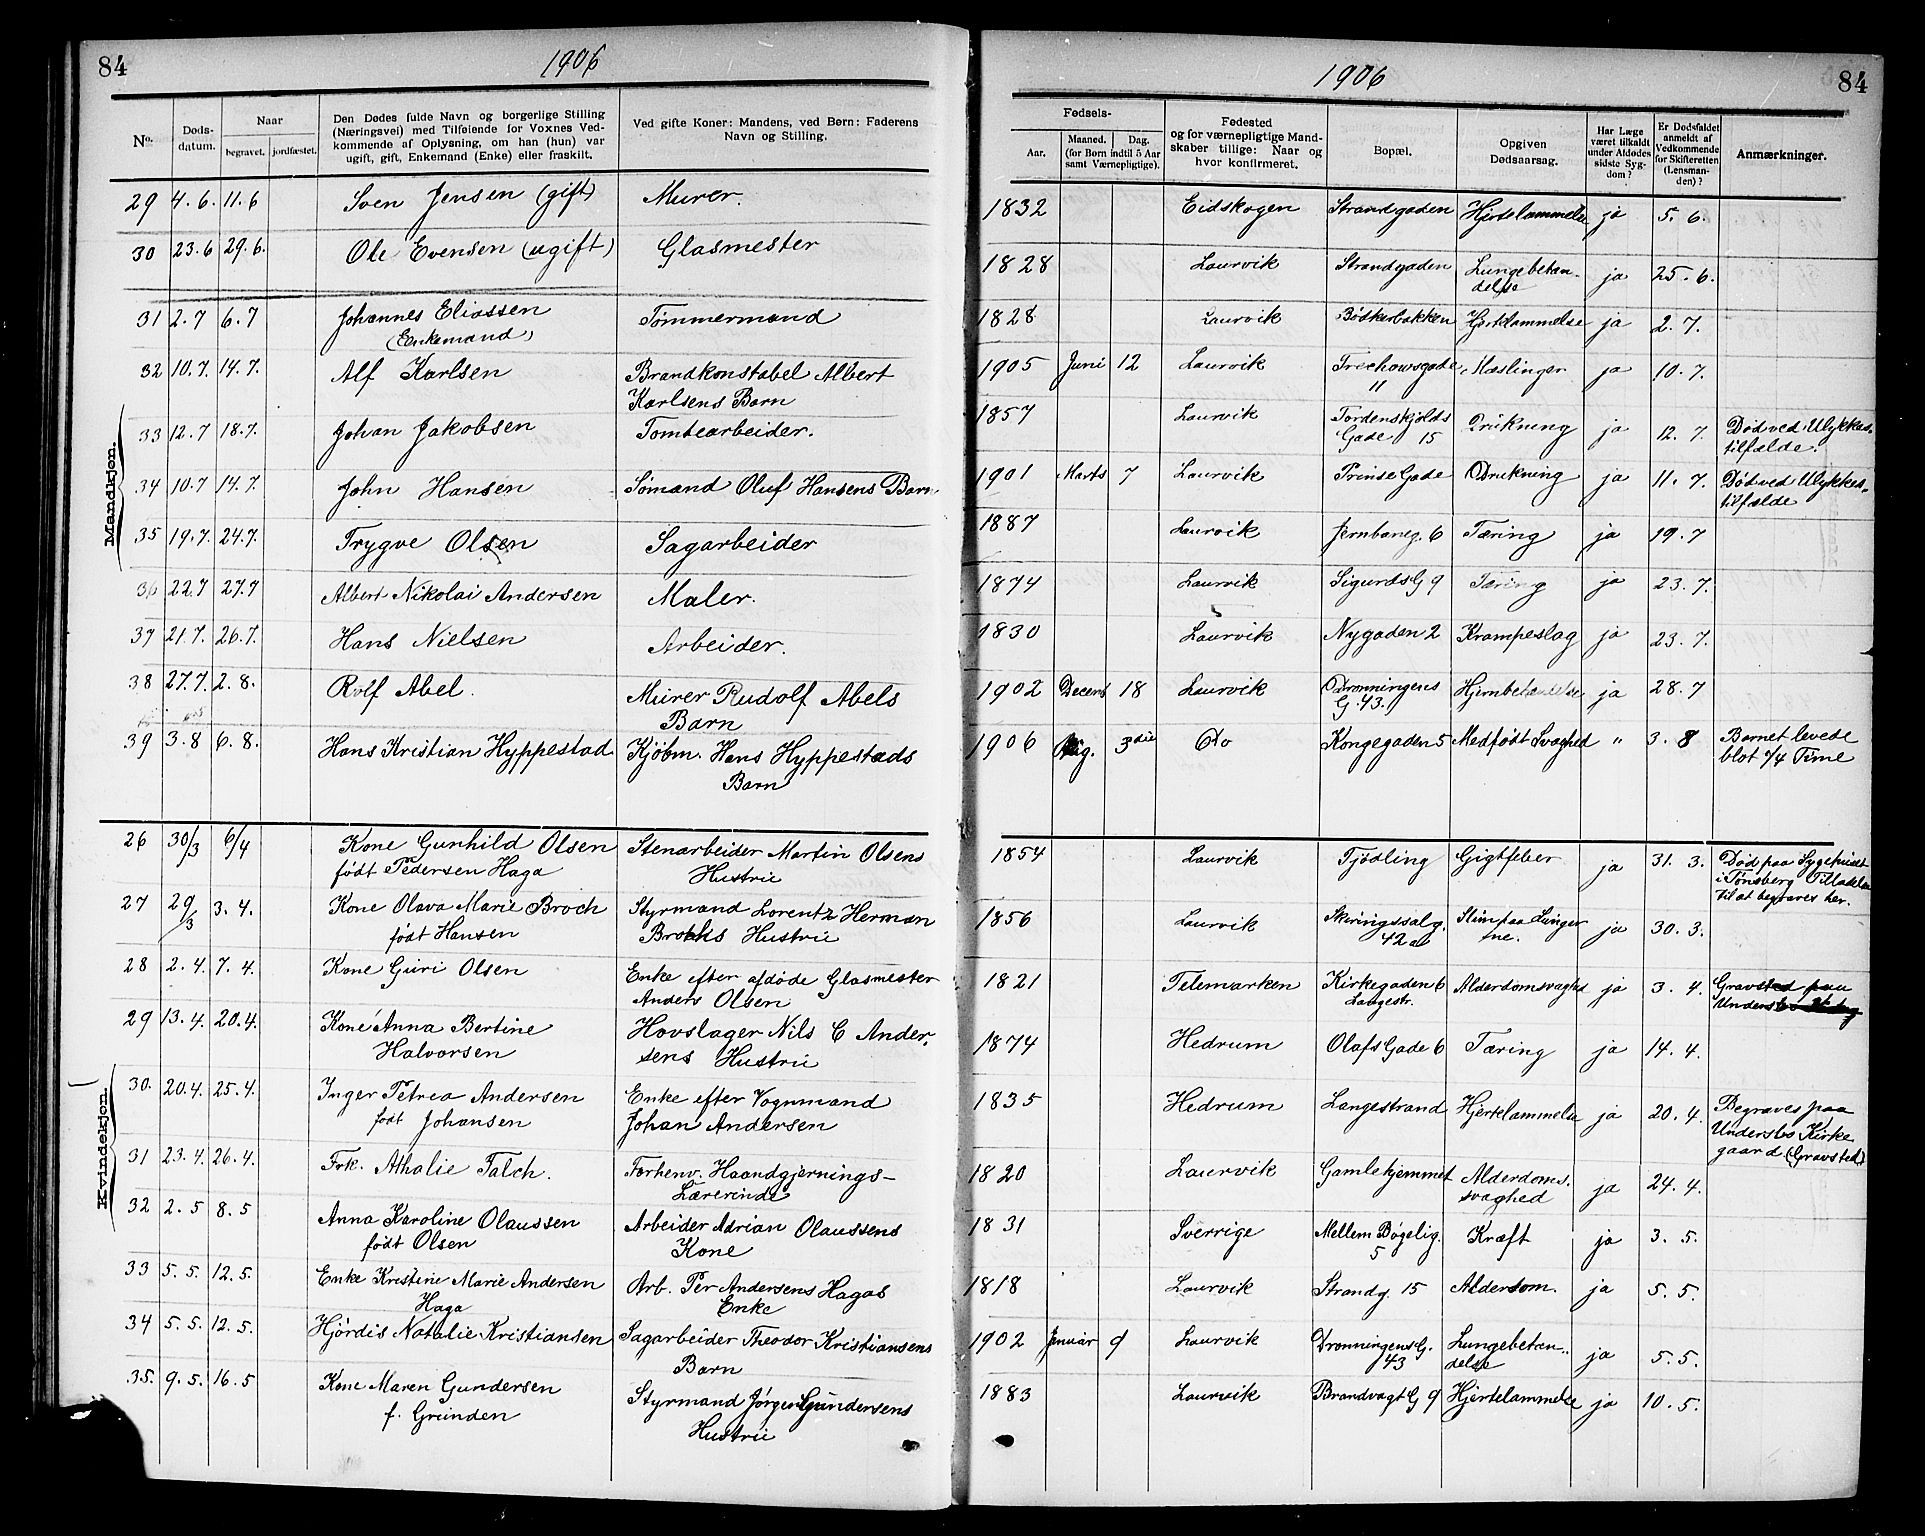 84
1906
No.
Døds-
datum.
Naar
begravet.
jordfæstet.
Den Dødes fulde Navn og borgerlige Stilling
(Næringsvei) med Tilføiende for Voxnes Ved-
kommende af Oplysning, om han (hun) var
ugift, gift, Enkemand (Enke) eller fraskilt.
Ved gifte Koner: Mandens, ved Børn: Faderens
Navn og Stilling.
Mandkjøn.
29 4.6. 11.6 Sven Jensen (gift) Murer.
30 23.6 29.6. Ole Evensen (ugift) Glasmester
31 2.7 6.7 Johannes Eliassen Tømmermand
(Enkemand)
32 10.7. 14.7. Alf Karlsen Brandkonstabel Albert
Karlsens Barn
33 12.7 18.7. Johan Jakobsen Tomtearbeider.
34 10.7 14.7. John Hansen Sømand Oluf Hansens Barn
35 19.7. 24.7. Trygve Olsen Sagarbeider
36 22.7 27.7 Albert Nikolai Andersen Maler.
37 21.7. 26.7. Hans Nielsen Arbeider.
38 27.7. 2.8. Rolf Abel. Murer Rudolf Abels
Barn
39 3.8 6.8. Hans Kristian Hyppestad Kjøbm. Hans Hyppestads
Barn
Kvindekjøn.
26 30/3 6/4 Kone Gunhild Olsen Stenarbeider Martin Olsens
født Pedersen Haga Hustru
27 29/3 3.4. Kone Olava Marie Broch Styrmand Lorentz Herman
født Hansen Brochs Hustru
28 2.4. 7.4. Kone Guri Olsen Enke efter afdøde Glasmester
Anders Olsen
29 13.4. 20.4. Kone Anna Bertine Hovslager Nils C Ander-
Halvorsen sens Hustru
30. 20.4. 25.4. Inger Petrea Andersen Enke efter Vognmand
født Johansen Johan Andersen
31 23.4. 26.4. Frk. Athalie Falch. Forhenv. Haandgjernings-
Lærerinde
32 2.5 8.5 Anna Karoline Olaussen Arbeider Adrian Olaussens
født Olsen Kone
33 5.5. 12.5. Enke Kristine Marie Andersen Arb. Per Andersens Hagas
Haga Enke
34 5.5. 12.5. Hjördis Natalie Kristiansen Sagarbeider Theodor Kristiansens
Barn
35. 9.5. 16.5 Kone Maren Gundersen Styrmand Jørgen Gundersens
f. Grunden Hustru
1906
84
Fødsels-
Aar.
Maaned.
Dag.
(for Børn indtil 5 Aar
samt Værnepligtige).
Fødested
og for værnepligtige Mand-
skaber tillige: Naar og
hvor konfirmeret.
Bopæl.
Opgiven
Dødsaarsag.
Har Læge
været tilkaldt
under Afdødes
sidste Syg-
dom?
Er Dødsfaldet
anmeldt af
Vedkommende
for Skifteretten
(Lensman-
den)?
Anmærkninger.
1832 Eidskogen Strandgaden Hjertelammelse ja 5.6.
1828 Laurvik Strandgaden Lungebetæn- ja 25.6.
delse
1828 Laurvik Bødkerbakken Hjertelammelse ja 2.7.
1905 Juni 12 Laurvik Trechowsgade Mæslinger ja 10.7.
11
1857 Laurvik Tordenskjolds Drukning ja 12.7. Død ved Ulykkes-
Gade 15 tilfælde.
1901 Marts 7 Laurvik Prinse Gade Drukning ja 11.7. Død ved Ulykkes-
tilfælde
1887 Laurvik Jernbaneg. 6 Tæring ja 19.7
1874 Laurvik Sigurds G 9 Tæring ja 23.7.
1830 Laurvik Nygaden 2 Krampeslag ja 23.7.
1902 Decemb 18 Laurvik Dronningens Hjernbetændelse ja 28.7
G. 43.
1906 Aug. 3die Do Kongegaden 5 Medfødt Svaghed " 3.8 Barnet levede
blot ¼ Time
1854 Laurvik Tjødling Gigtfeber ja 31.3. Død paa Sygehuset
i Tønsberg Tilladelse
til at begraves her.
1856 Laurvik Skiringssalg. Slim paa Lunger ja 30.3.
42 a ne.
1821 Telemarken Kirkegaden 6 Alderdomsvaghed ja 3.4. Gravsted paa
Langestr. Undersbo
1874 Hedrum Olafs Gade 6 Tæring ja 14.4.
1835 Hedrum Langestrand Hjertelammelse ja 20.4. Begraves paa
Undersbo Kirke
gaard (Gravsted)
1820 Laurvik Gamlehjemmet Alderdoms- ja 24.4.
svaghed
1831 Sverrige Mellem Bøgelig. Kræft ja 3.5.
5
1818 Laurvik Strandg. 15 Alderdom. ja 5.5.
1902 Januar 9 Laurvik Dronningens G. Lungebetæn- ja 5.5.
43 delse
1883 Laurvik Brandvagt G 9 Hjertelammelse ja 10.5.